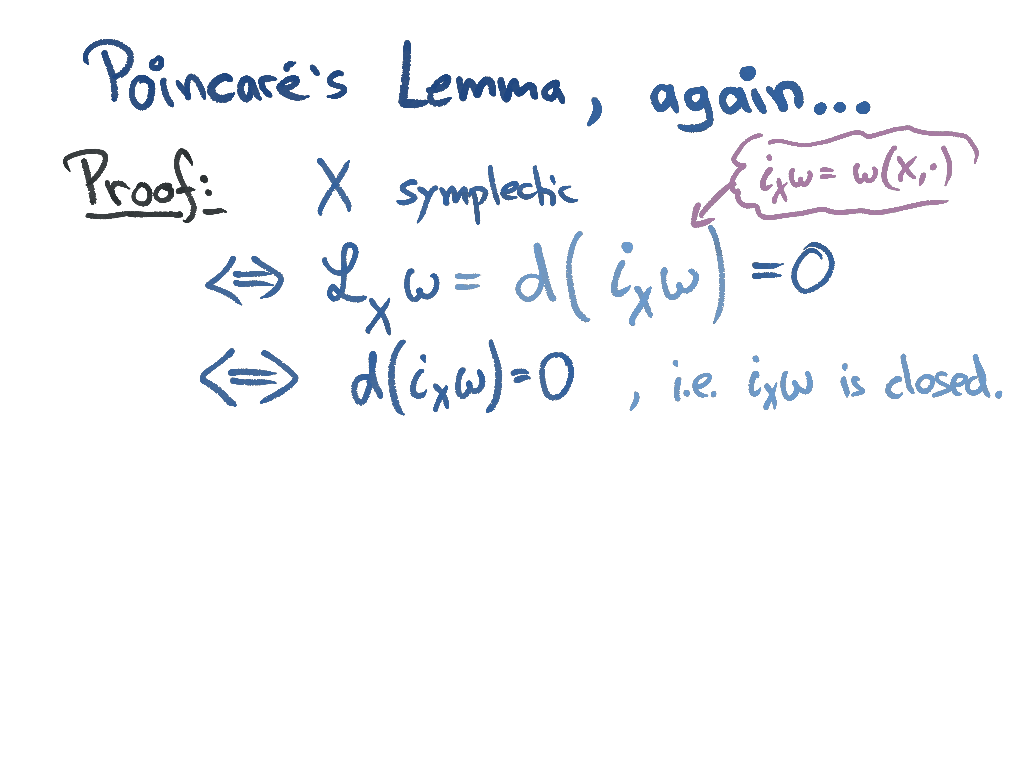 Poincaré's Lemma, again...
i_X ω = ω(X,·)
Proof: X symplectic
⟺ ℒ_X ω = d(i_X ω) = 0
⟺ d(i_X ω) = 0 , i.e. i_X ω is closed.